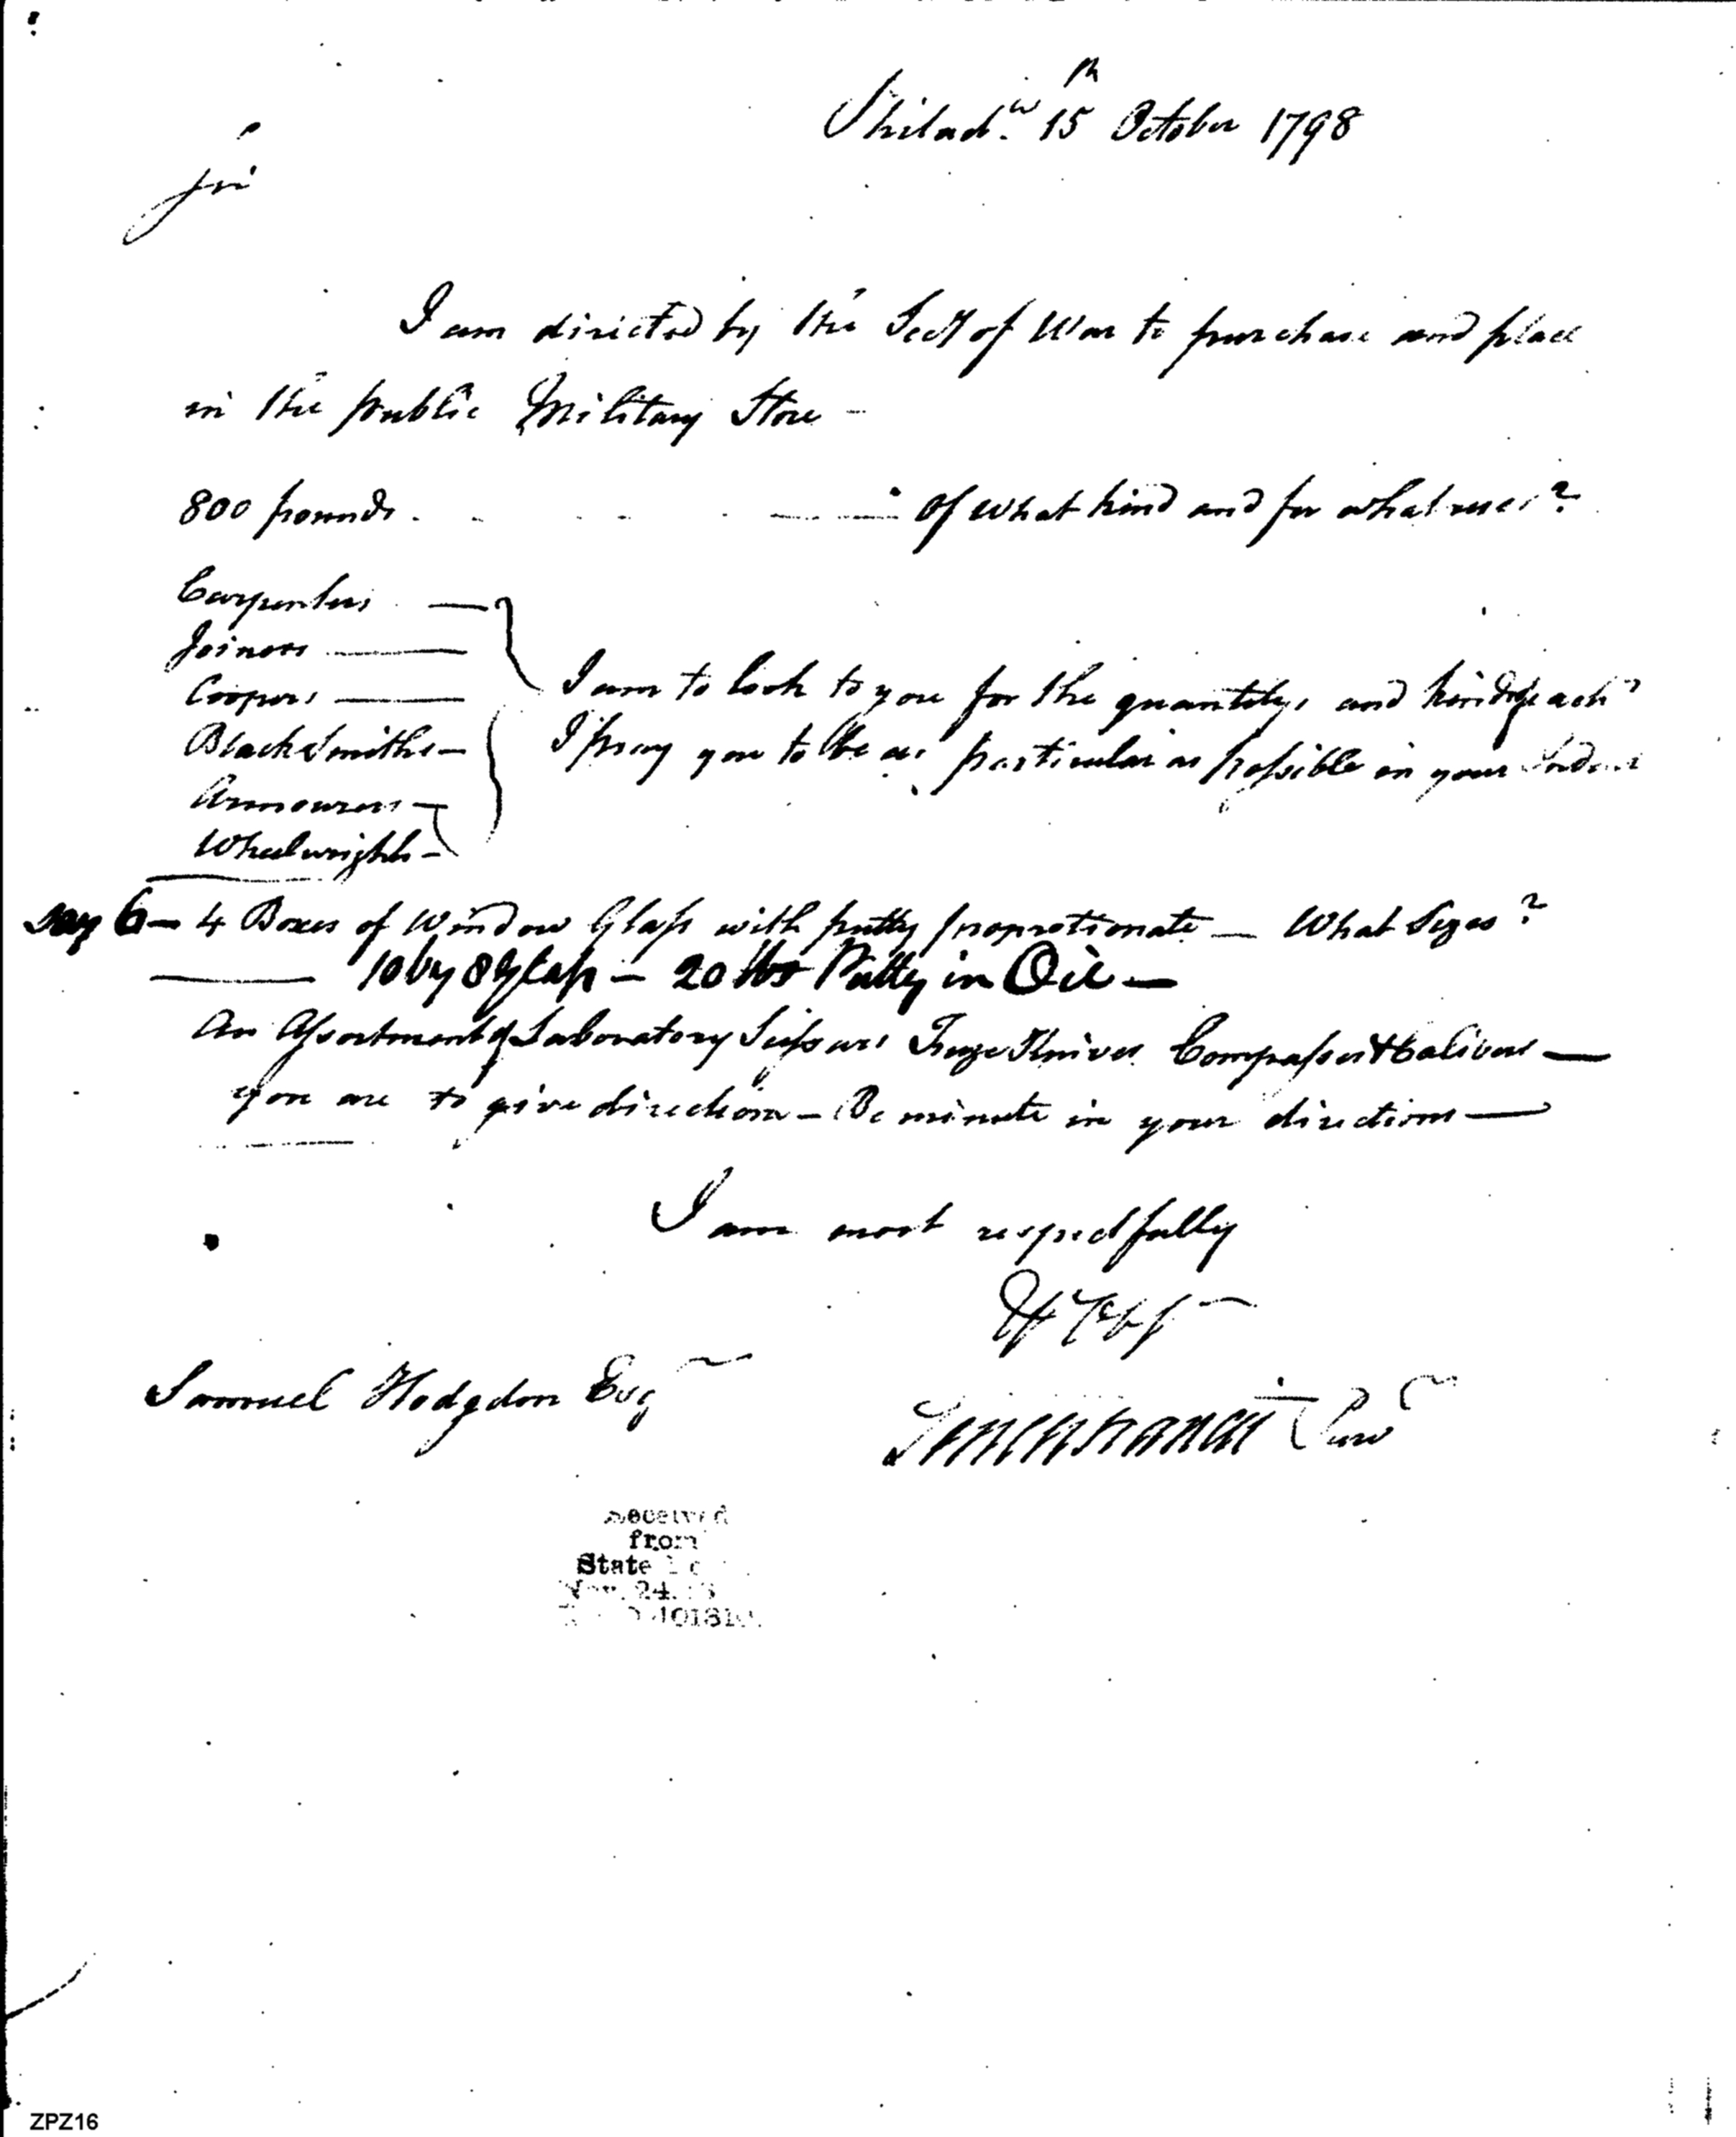 Philad.ᵃ 15th October 1798
Sir
I am directed by the Secy of War to purchase and place
in the public Military Store –
800 pounds . . . . . . Of what kind and for what uses?
Carpenters —
Joiners —
Coopers —
BlackSmiths —
Armourers —
Wheelwrights —
I am to look to you for the quantitys and kinds of each
I pray you to be as particular as possible in your
say 6 – 4 Boxes of Window Glass with putty proportionate — What Sizes?
10 by 8 Glass — 20 lbs Putty in Oil —
An Assortment of Laboratory Scissars Fuze Knives Compasses & Calibers —
you are to give directions – Be minute in your directions —
I am most respectfully
Samuel Hodgdon Esq
Tench Francis Purv
Received
from
State
24
ZPZ16